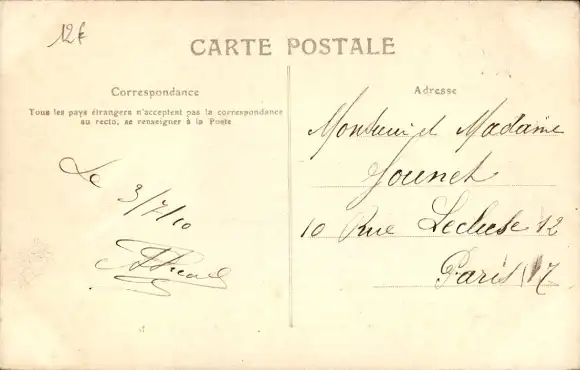 12€
CARTE POSTALE
Correspondance
Tous les pays étrangers n'acceptent pas la correspondance
au recto, se renseigner à la Poste
Le 3/7/10
Adresse
Monsieur et Madame
Jounet
10 Rue Lecluse 12
Paris 17